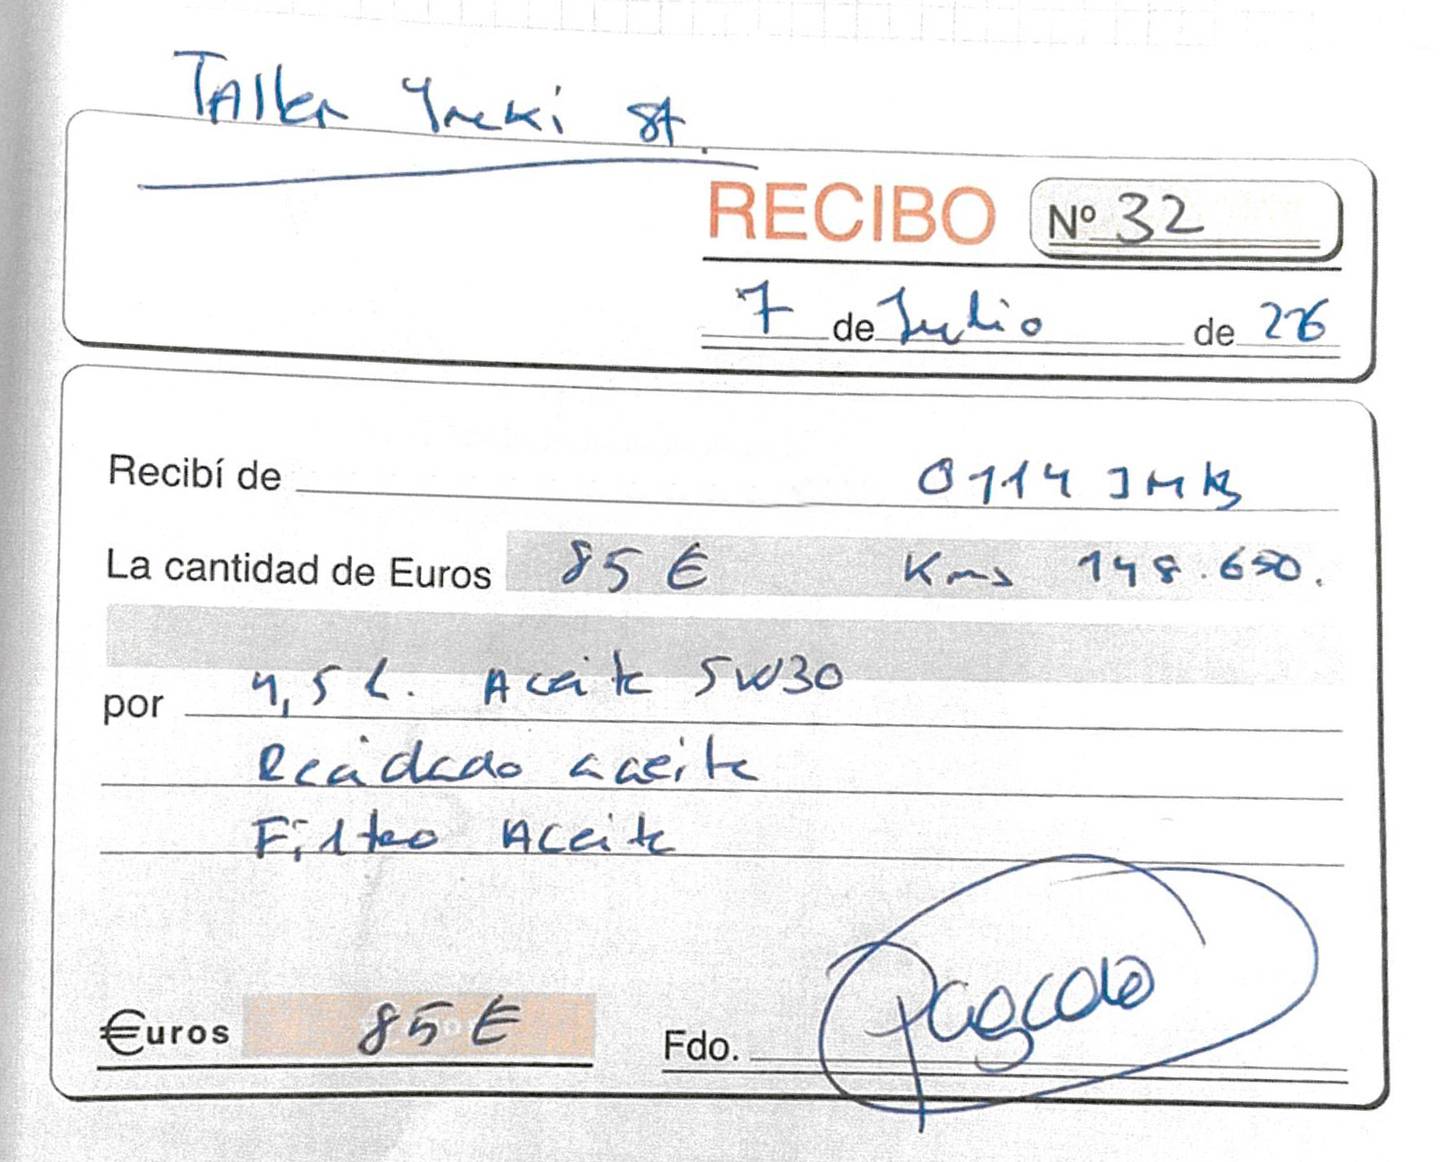 Taller Yreki St.
RECIBO Nº 32
7 de Julio de 26
Recibí de 0114 JMB
La cantidad de Euros 85 € Kms 148.650.
por 4,5 L. Aceite 5W30
Recidado aceite
Filtro Aceite
€uros 85 € Fdo. Pagado